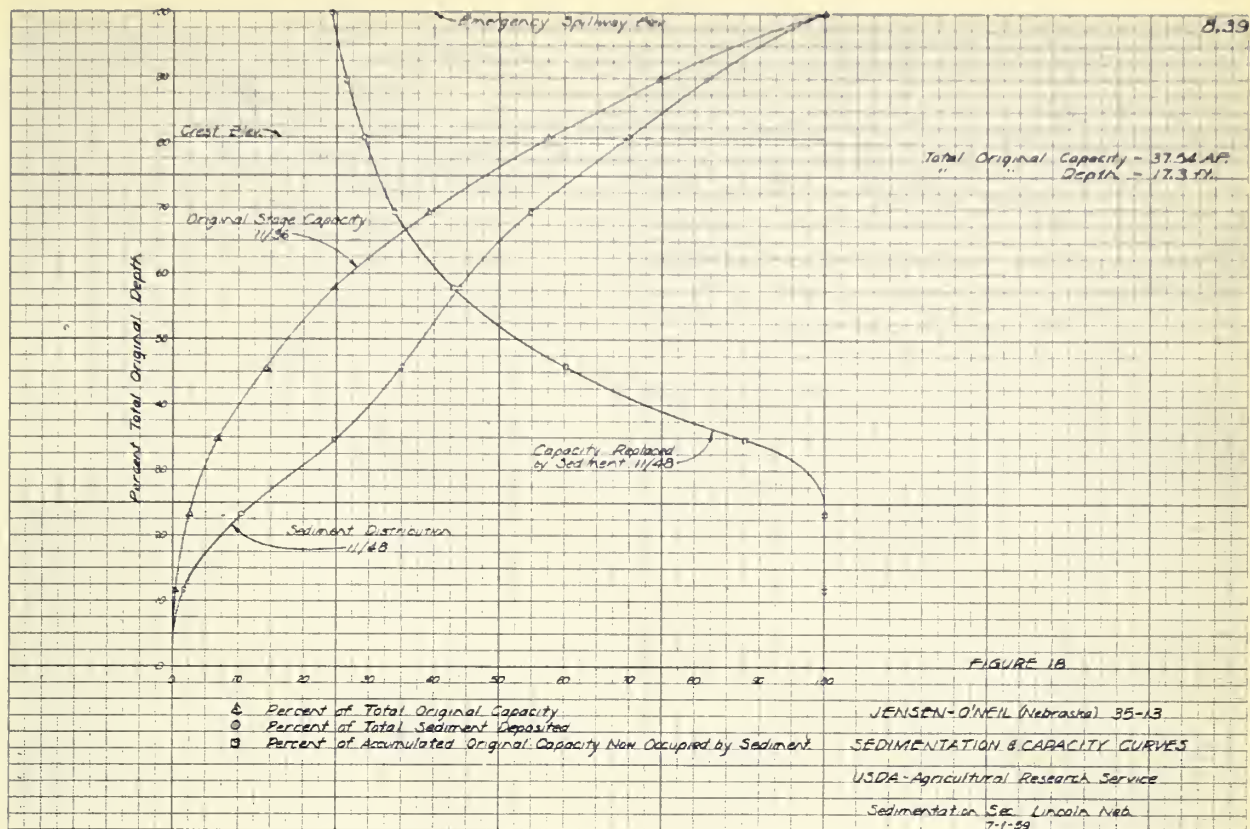 8.39
Emergency Spillway Elev.
Crest Elev.
Total Original Capacity - 37.54 AF.
" " Depth - 17.3 ft.
Original Stage Capacity
11/36
Percent Total Original Depth
100
90
80
70
60
50
40
30
20
10
0
Capacity Replaced
by Sediment 11/48
Sediment Distribution
11/48
0 10 20 30 40 50 60 70 80 90 100
Percent of Total Original Capacity
Percent of Total Sediment Deposited
Percent of Accumulated Original Capacity Now Occupied by Sediment
FIGURE 18
JENSEN-O'NEIL (Nebraska) 35-13
SEDIMENTATION & CAPACITY CURVES
USDA-Agricultural Research Service
Sedimentation Sec. Lincoln Neb.
7-1-59